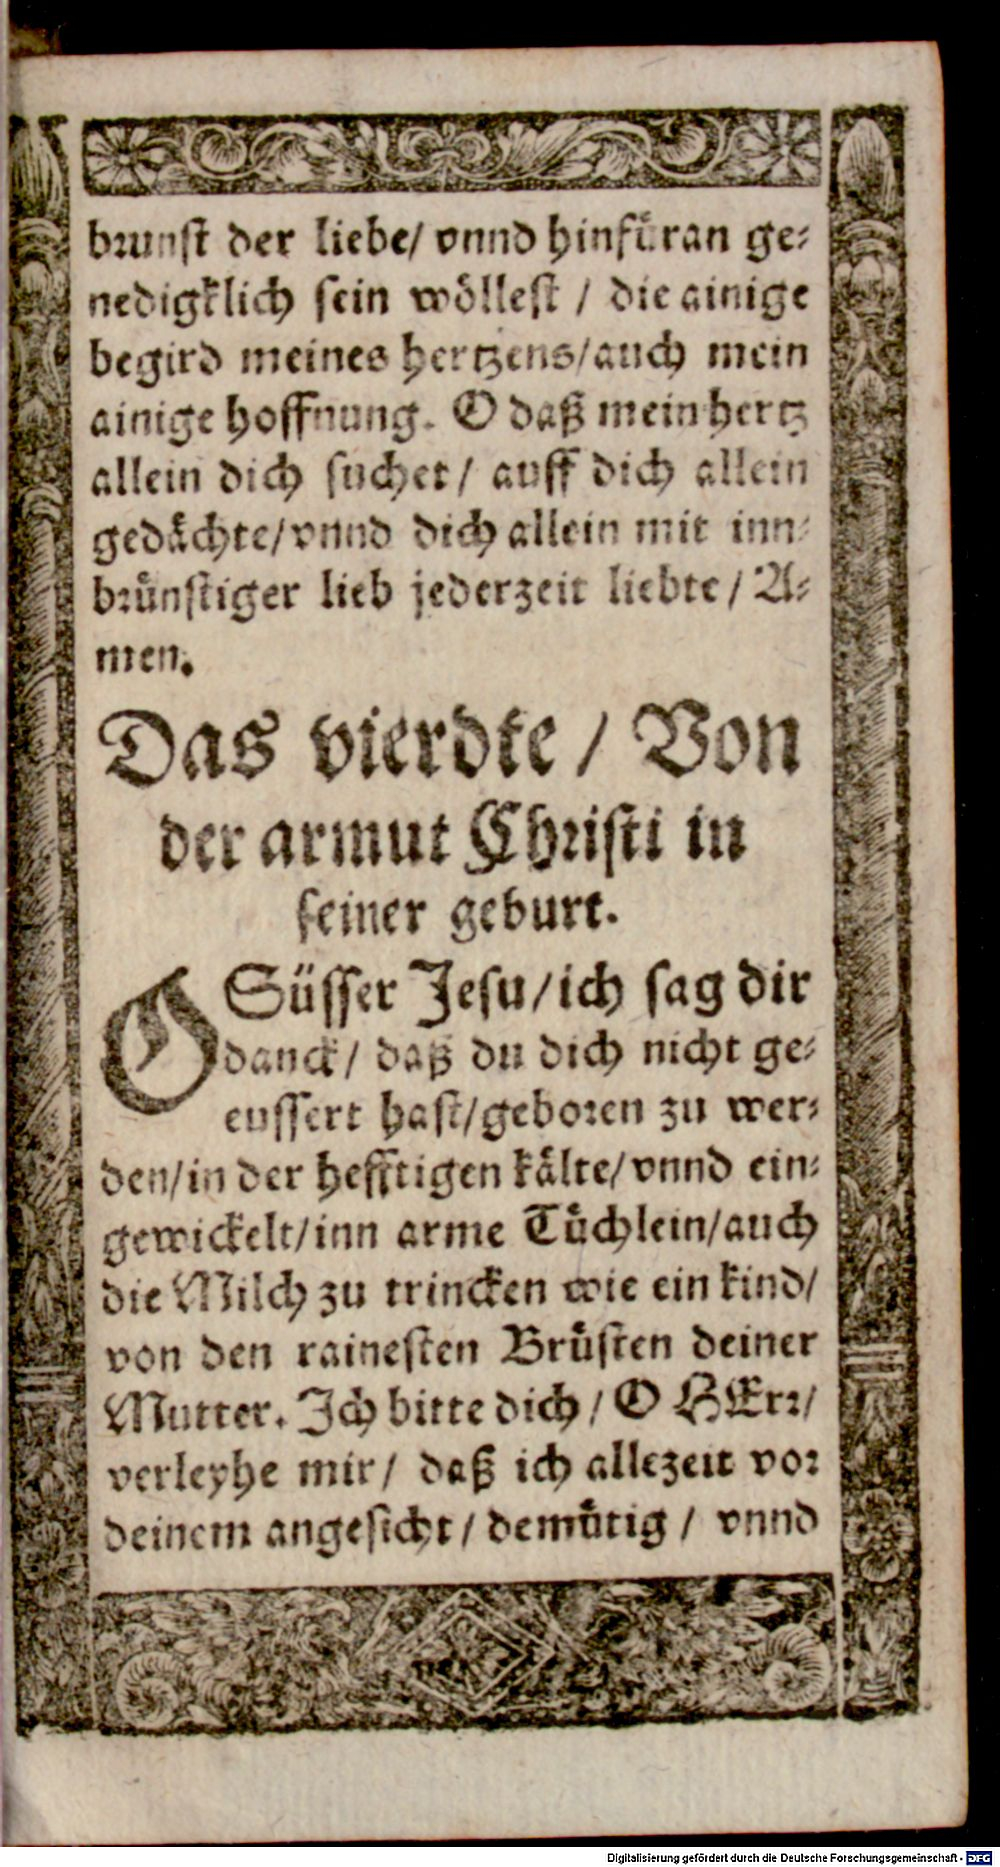 brunst der liebe/ vnnd hinfüran ge-
nedigklich sein wöllest / die ainige
begird meines hertzens/ auch mein
ainige hoffnung. O daß mein hertz
allein dich suchet/ auff dich allein
gedächte/ vnnd dich allein mit inn-
brünstiger lieb jederzeit liebte/ A-
men.
Das vierdte / Von
der armut Christi in
seiner geburt.
O Süsser Jesu/ ich sag dir
danck/ daß du dich nicht ge-
eussert hast/ geboren zu wer-
den/ in der hefftigen kälte/ vnnd ein-
gewickelt/ inn arme Tüchlein/ auch
die Milch zu trincken wie ein kind/
von den rainesten Brüsten deiner
Mutter. Ich bitte dich / O HErr/
verleyhe mir/ daß ich allezeit vor
deinem angesicht/ demütig / vnnd
Digitalisierung gefördert durch die Deutsche Forschungsgemeinschaft - DFG